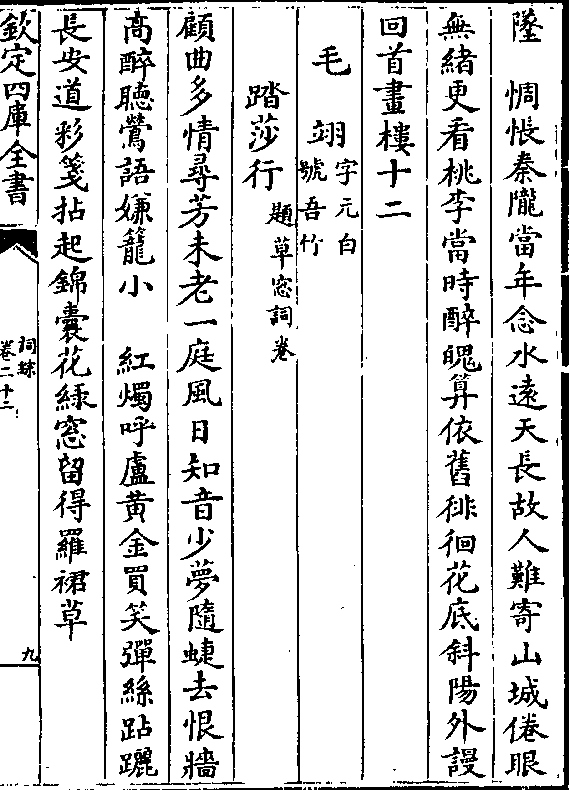 墬　惆悵秦隴當年念水遠天長故人難寄山城倦眼
無緒更看桃李當時醉魄算依舊徘徊花底斜陽外謾
回首畫樓十二
毛　翊字元白號吾竹
踏莎行題草窓詞卷
顧曲多情尋芳未老一庭風日知音少夢隨蜨去恨牆
高醉聽鶯語嫌籠小　紅燭呼盧黄金買笑彈絲跕躧
長安道彩箋拈起錦囊花緑窓留得羅裙草
欽定四庫全書
詞綜
卷二十二
九